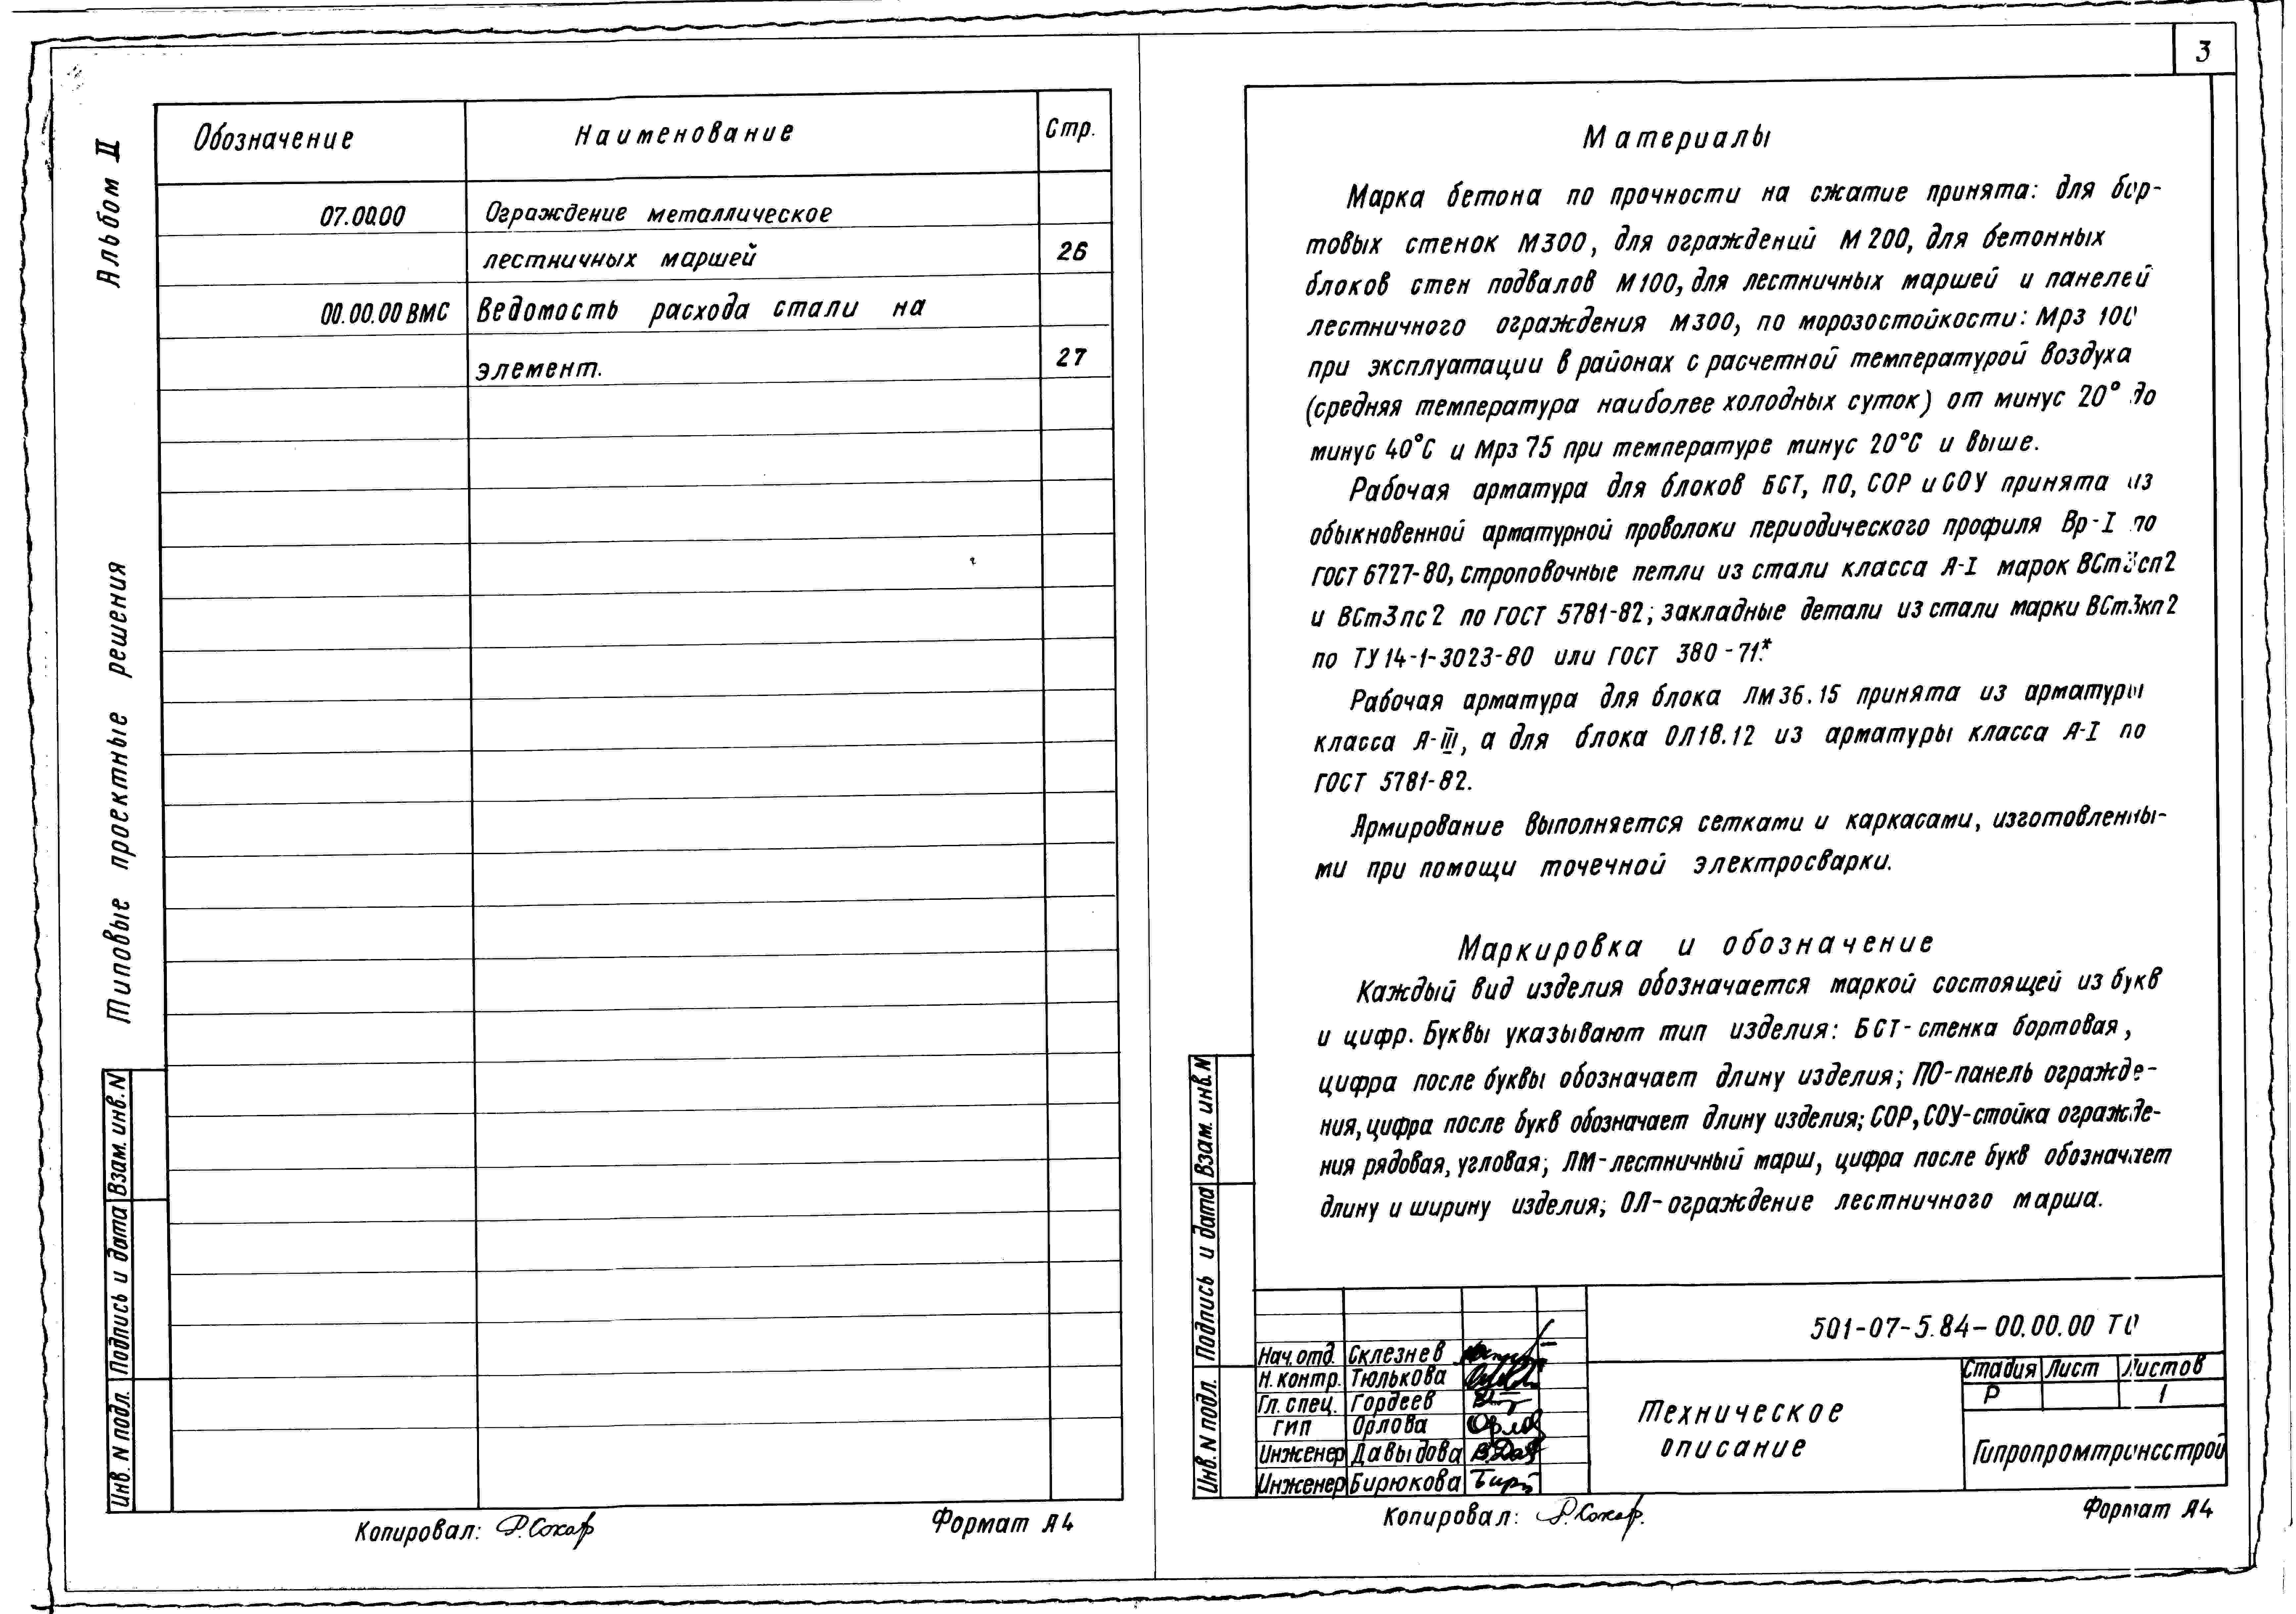 3
Альбом II
Типовые проектные решения
Обозначение Наименование Стр.
07.00.00 Ограждение металлическое
лестничных маршей 26
00.00.00 ВМС Ведомость расхода стали на
элемент. 27
Взам. инв. N
Подпись и дата
Инв. N подл.
Копировал: Р. Сокар
Формат А4
Материалы
Марка бетона по прочности на сжатие принята: для бор-
товых стенок М300, для ограждений М 200, для бетонных
блоков стен подвалов М100, для лестничных маршей и панелей
лестничного ограждения М300, по морозостойкости: Мрз 100
при эксплуатации в районах с расчетной температурой воздуха
(средняя температура наиболее холодных суток) от минус 20° до
минус 40°С и Мрз 75 при температуре минус 20°С и выше.
Рабочая арматура для блоков БСТ, ПО, СОР и СОУ принята из
обыкновенной арматурной проволоки периодического профиля Вр-I по
ГОСТ 6727-80, строповочные петли из стали класса А-I марок ВСт3сп2
и ВСт3пс2 по ГОСТ 5781-82; закладные детали из стали марки ВСт3кп2
по ТУ 14-1-3023-80 или ГОСТ 380-71.*
Рабочая арматура для блока ЛМ36.15 принята из арматуры
класса А-III, а для блока ОЛ18.12 из арматуры класса А-I по
ГОСТ 5781-82.
Армирование выполняется сетками и каркасами, изготовленны-
ми при помощи точечной электросварки.
Маркировка и обозначение
Каждый вид изделия обозначается маркой состоящей из букв
и цифр. Буквы указывают тип изделия: БСТ-стенка бортовая,
цифра после буквы обозначает длину изделия; ПО-панель огражде-
ния, цифра после букв обозначает длину изделия; СОР, СОУ-стойка огражде-
ния рядовая, угловая; ЛМ-лестничный марш, цифра после букв обозначает
длину и ширину изделия; ОЛ-ограждение лестничного марша.
Взам. инв. N
Подпись и дата
Инв. N подл.
501-07-5.84-00.00.00 ТО
Нач. отд. Склезнев
Н. контр. Тюлькова
Гл. спец. Гордеев
ГИП Орлова
Инженер Давыдова
Инженер Бирюкова
Техническое
описание
Стадия Лист Листов
Р 1
Гипропромтрансстрой
Копировал: Р. Сокар.
Формат А4